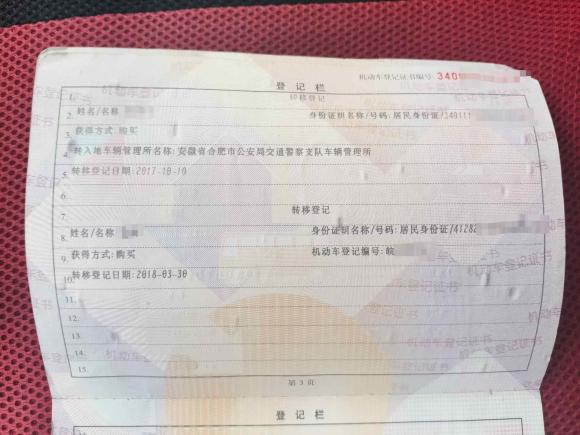 机动车登记证书编号: 340
登记栏
1. 转移登记
2. 姓名/名称 身份证明名称/号码: 居民身份证/340111
3. 获得方式: 购买
4. 转入地车辆管理所名称: 安徽省合肥市公安局交通警察支队车辆管理所
5. 转移登记日期: 2017-10-19
6.
7. 转移登记
8. 姓名/名称 身份证明名称/号码: 居民身份证/41282
9. 获得方式: 购买 机动车登记编号: 皖
10. 转移登记日期: 2018-03-30
11.
12.
13.
14.
15.
第 3 页
登记栏